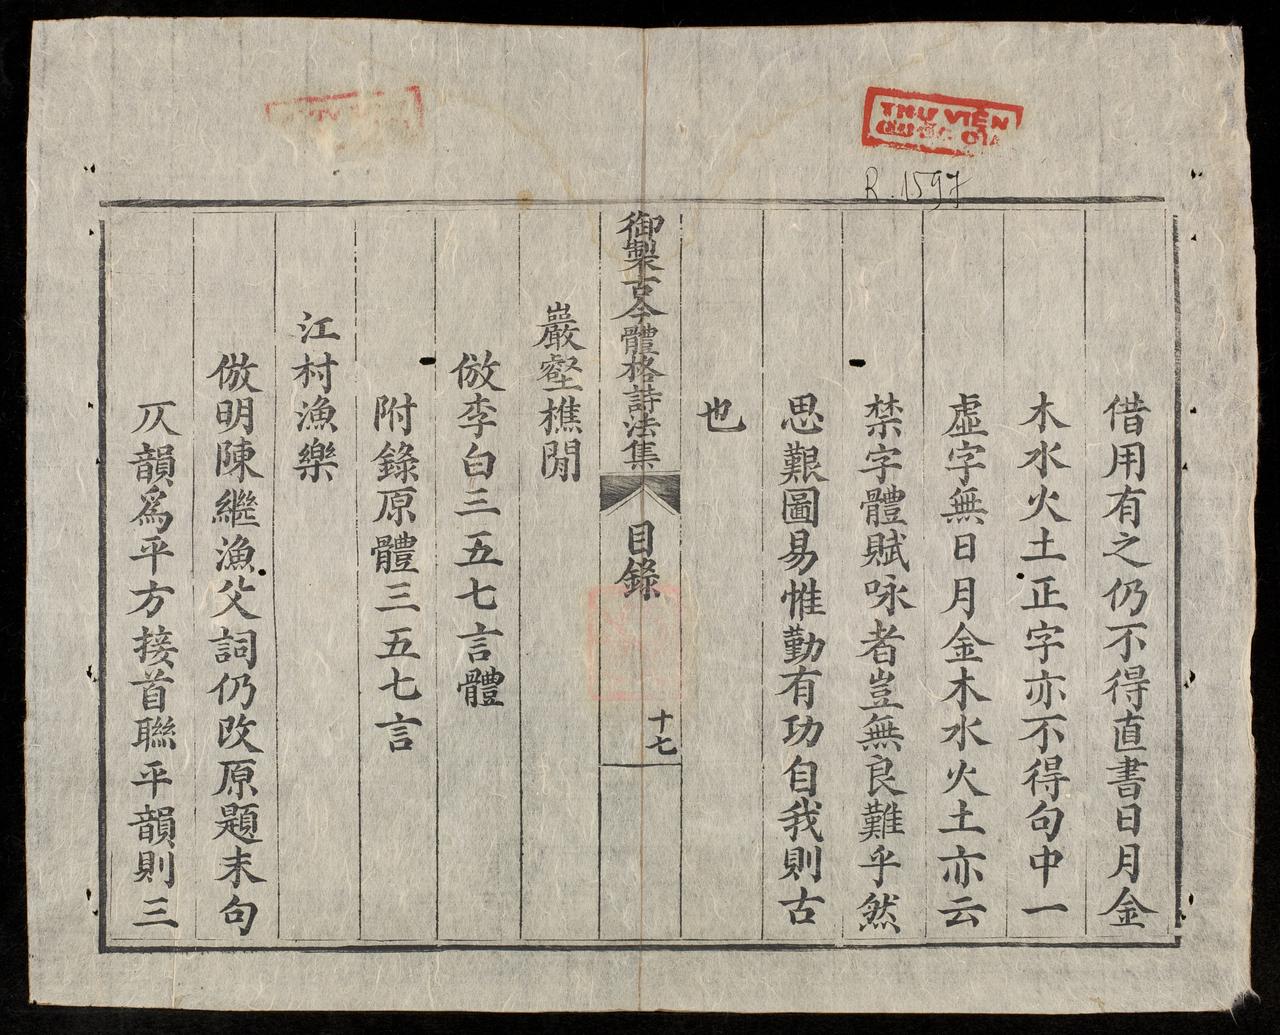 THƯ VIỆN
QUỐC GIA
R.1597
借用有之仍不得直書日月金
木水火土正字亦不得句中一
虛字無日月金木水火土亦云
禁字體賦咏者豈無良難乎然
思艱圖易惟勤有功自我則古
也
御製古今體格詩法集
目錄
十七
巖壑樵閒
倣李白三五七言體
附錄原體三五七言
江村漁樂
倣明陳繼漁父詞仍改原題末句
仄韻爲平方接首聯平韻則三